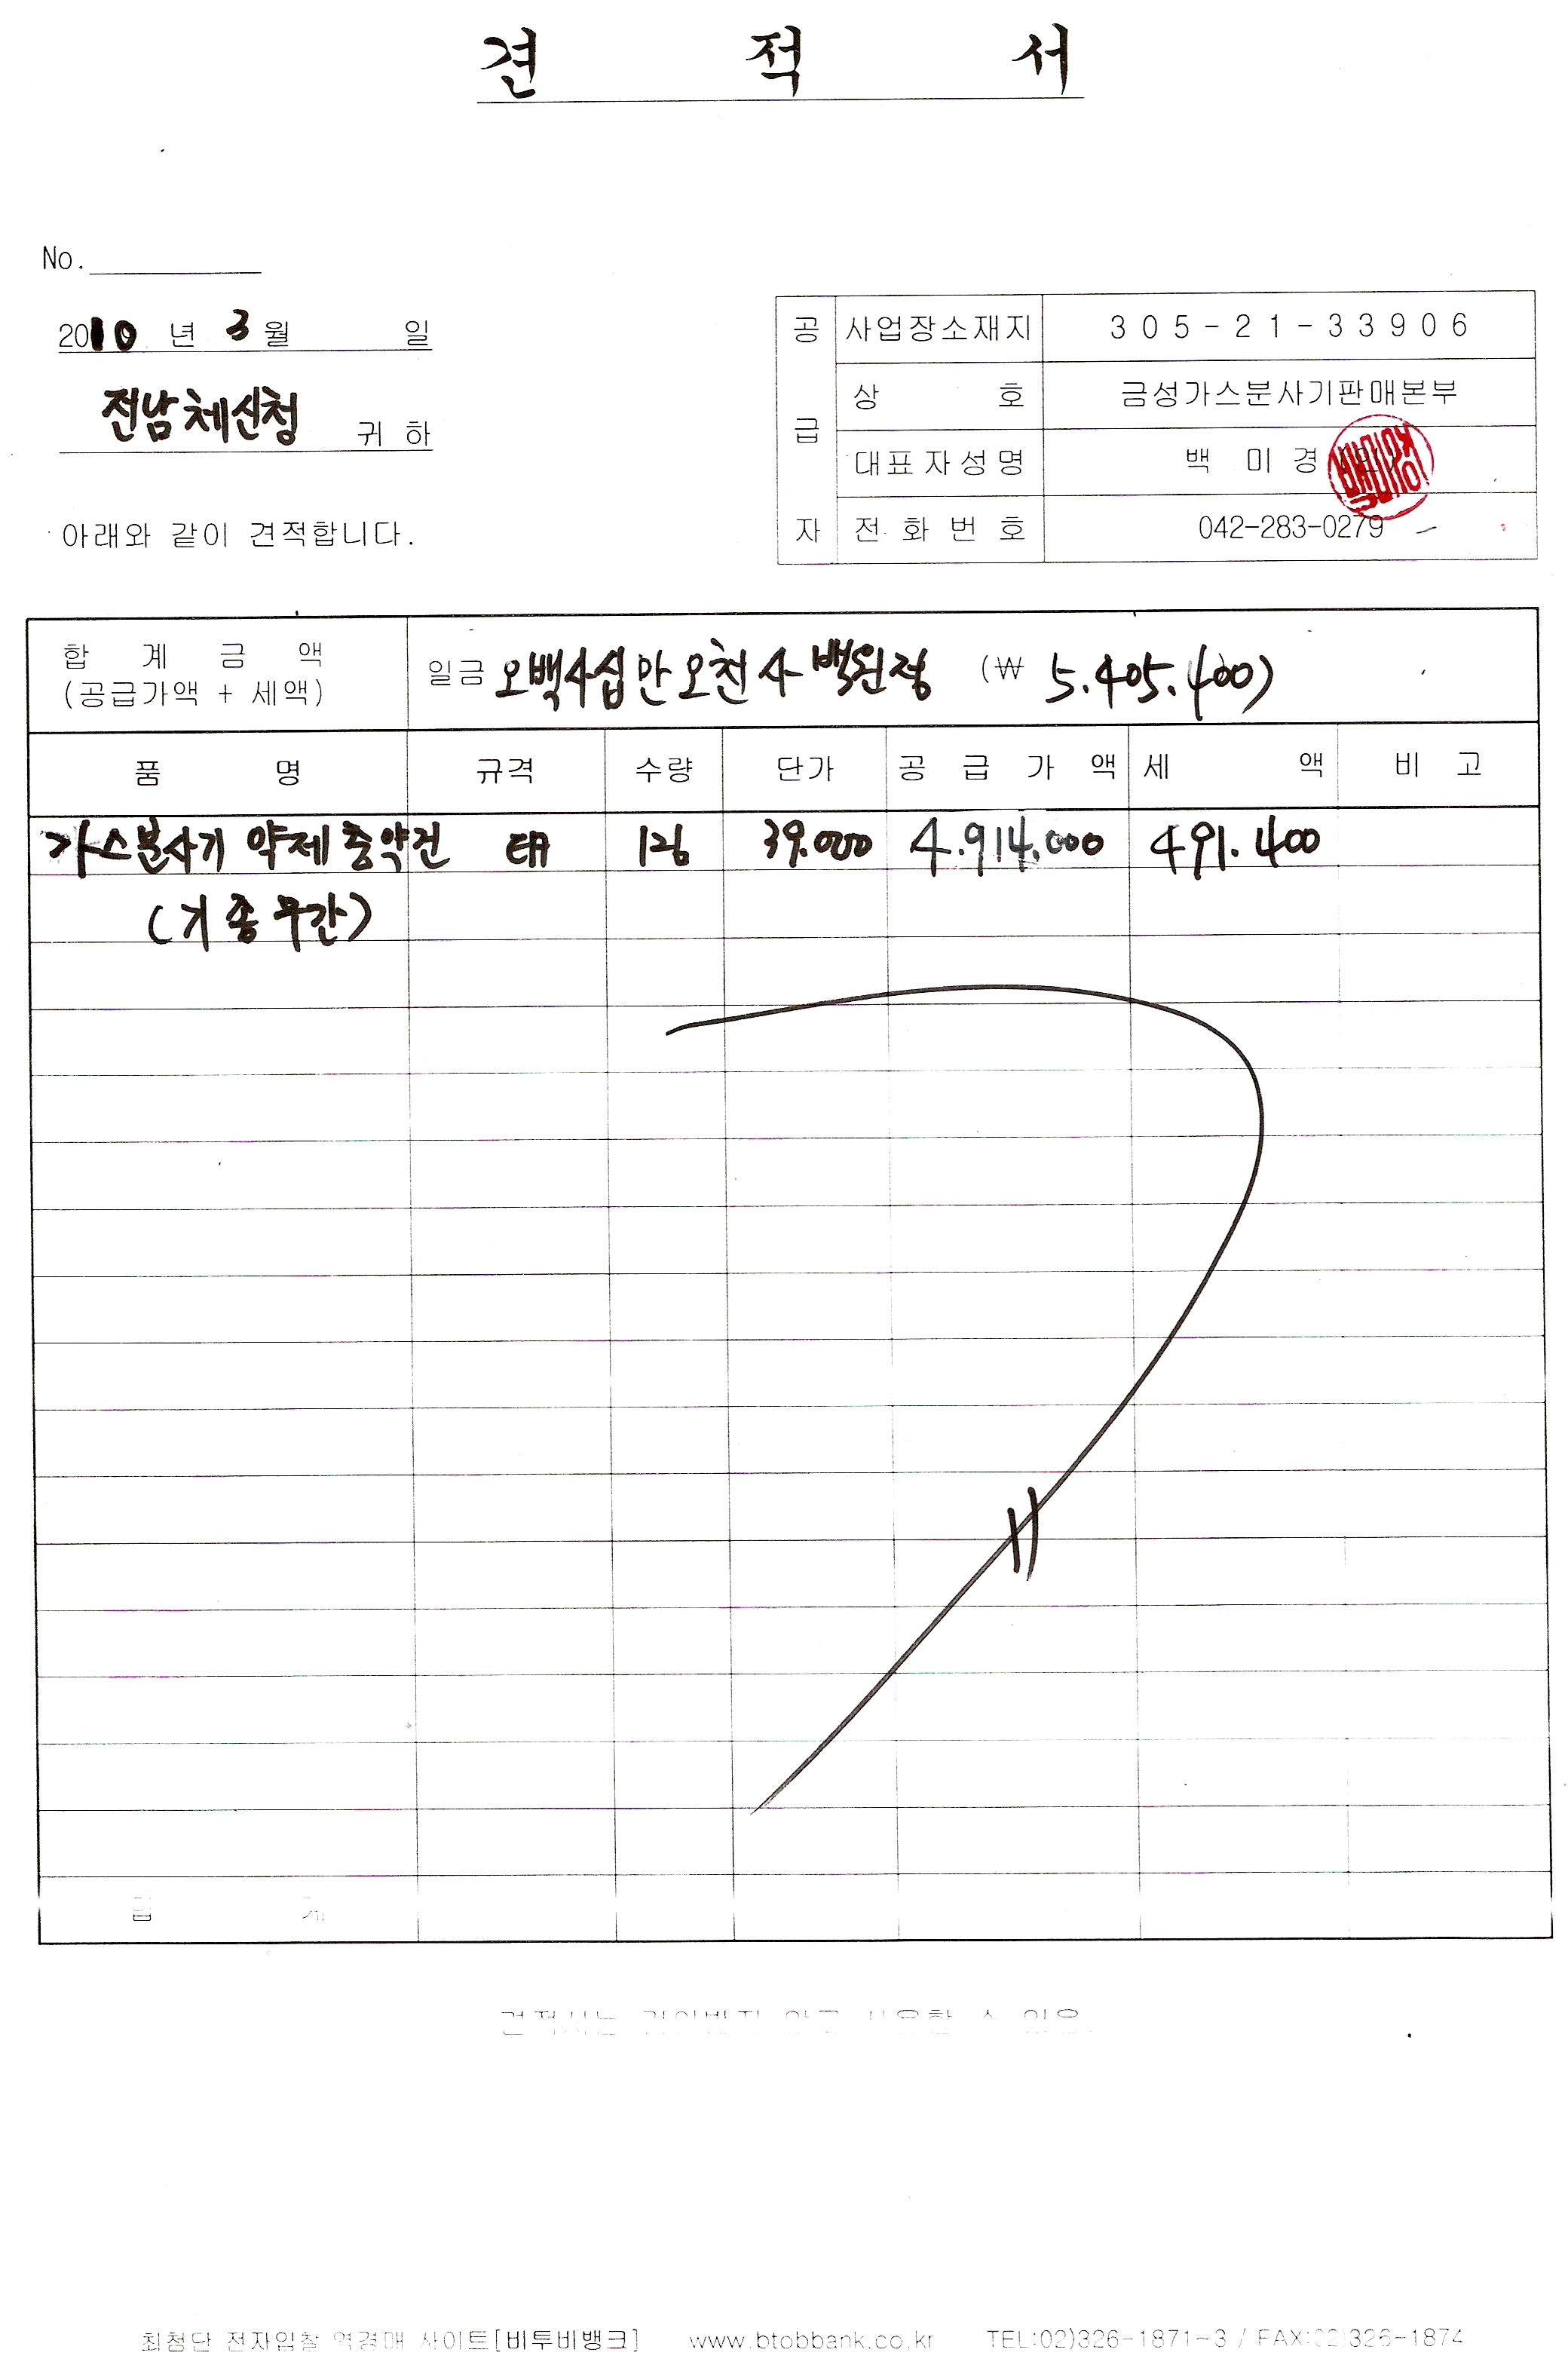 견 적 서
No.
2010 년 3 월 일
전남체신청 귀 하
아래와 같이 견적합니다.
공 급 자
사업장소재지 305-21-33906
상 호 금성가스분사기판매본부
대표자성명 백 미 경
전 화 번 호 042-283-0279
합 계 금 액 (공급가액 + 세액)
일금 오백사십만오천사백원정 (₩ 5.405.400)
품 명 규격 수량 단가 공 급 가 액 세 액 비 고
가스분사기 약제충약건 EA 126 39.000 4.914.000 491.400
(기종무관)
합 계
최첨단 전자입찰 역경매 사이트[비투비뱅크] www.btobbank.co.kr TEL:02)326-1871~3 / FAX:02)326-1874